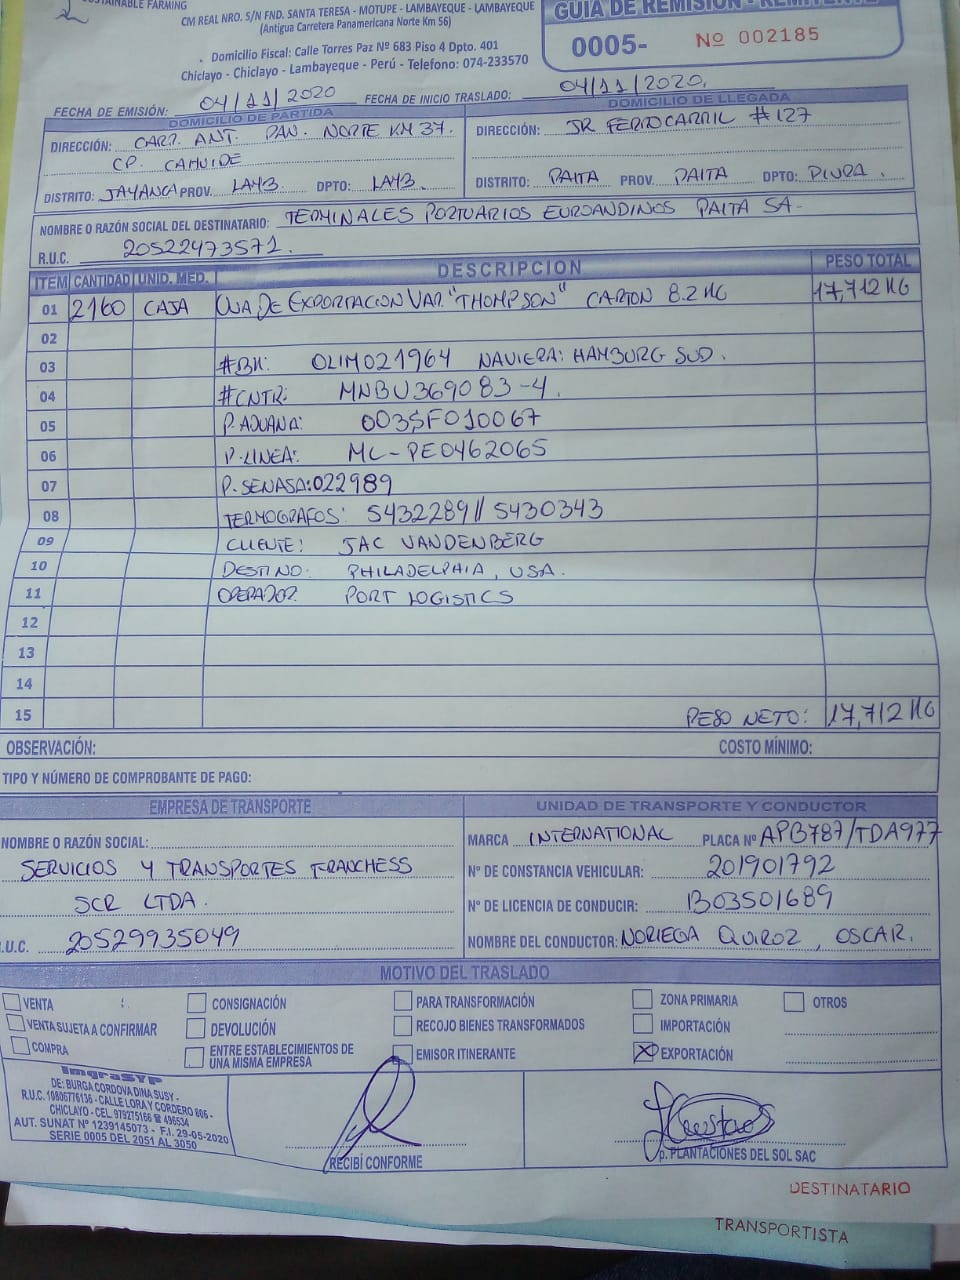 SUSTAINABLE FARMING
CM REAL NRO. S/N FND. SANTA TERESA - MOTUPE - LAMBAYEQUE - LAMBAYEQUE
(Antigua Carretera Panamericana Norte Km 56)
Domicilio Fiscal: Calle Torres Paz Nº 683 Piso 4 Dpto. 401
Chiclayo - Chiclayo - Lambayeque - Perú - Telefono: 074-233570
GUIA DE REMISIÓN - REMITENTE
0005- Nº 002185
FECHA DE EMISIÓN: 04/11/2020 FECHA DE INICIO TRASLADO: 04/11/2020.
DOMICILIO DE PARTIDA
DIRECCIÓN: CARR. ANT. PAN. NORTE KM 37.
CP. CAHUIDE
DISTRITO: JAYANCA PROV. LAMB. DPTO: LAMB.
DOMICILIO DE LLEGADA
DIRECCIÓN: JR FERROCARRIL #127
DISTRITO: PAITA PROV. PAITA DPTO: PIURA.
NOMBRE O RAZÓN SOCIAL DEL DESTINATARIO: TERMINALES PORTUARIOS EUROANDINOS PAITA SA-
R.U.C. 20522473571.
ITEM CANTIDAD UNID. MED. DESCRIPCION PESO TOTAL
01 2160 CAJA UVA DE EXPORTACION VAR. "THOMPSON" CARTON 8.2 KG 17,712 KG
02
03 #BK: OLIM021964 NAVIERA: HAMBURG SUD.
04 #CNTR: MNBU369083-4.
05 P. ADUANA: 003SF010067
06 P-LINEA: MC-PE0462065
07 P. SENASA: 022989
08 TERMOGRAFOS: 5432289// 5430343
09 CLIENTE: JAC VANDENBERG
10 DESTINO: PHILADELPHIA, USA.
11 OPERADOR: PORT LOGISTICS
12
13
14
15 PESO NETO: 17,712 KG
OBSERVACIÓN: COSTO MÍNIMO:
TIPO Y NÚMERO DE COMPROBANTE DE PAGO:
EMPRESA DE TRANSPORTE
NOMBRE O RAZÓN SOCIAL:
SERVICIOS Y TRANSPORTES FRANCHESS
SCR LTDA.
R.U.C. 20529935049
UNIDAD DE TRANSPORTE Y CONDUCTOR
MARCA INTERNATIONAL PLACA Nº APB787/TDA977
Nº DE CONSTANCIA VEHICULAR: 201901792
Nº DE LICENCIA DE CONDUCIR: B03501689
NOMBRE DEL CONDUCTOR: NORIEGA QUIROZ, OSCAR.
MOTIVO DEL TRASLADO
VENTA CONSIGNACIÓN PARA TRANSFORMACIÓN ZONA PRIMARIA OTROS
VENTA SUJETA A CONFIRMAR DEVOLUCIÓN RECOJO BIENES TRANSFORMADOS IMPORTACIÓN
COMPRA ENTRE ESTABLECIMIENTOS DE UNA MISMA EMPRESA EMISOR ITINERANTE X EXPORTACIÓN
ImgraSYP
DE: BURGA CORDOVA DINA SUSY -
R.U.C. 10806776136 - CALLE LORA Y CORDERO 806 -
CHICLAYO - CEL. 979275166 ☎ 496534
AUT. SUNAT Nº 1239145073 - F.I. 29-05-2020
SERIE 0005 DEL 2051 AL 3050
RECIBÍ CONFORME
p. PLANTACIONES DEL SOL SAC
DESTINATARIO
TRANSPORTISTA